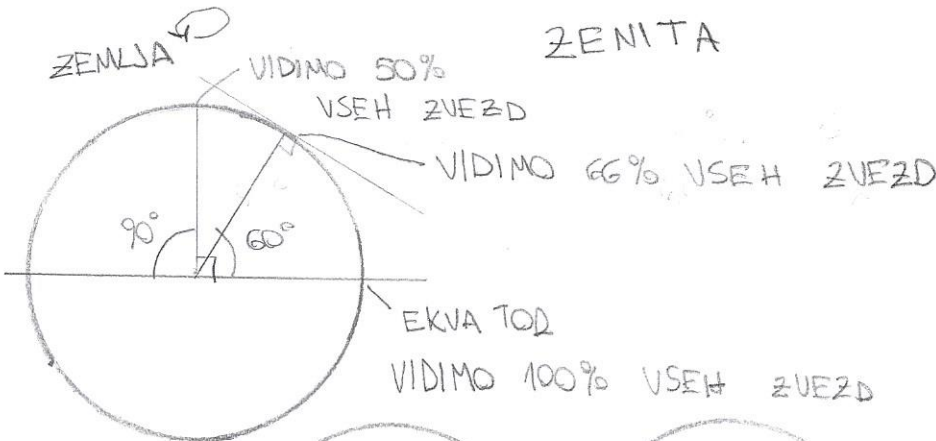 ZEMLJA
ZENITA
VIDIMO 50%
VSEH ZVEZD
VIDIMO 66% VSEH ZVEZD
90°
60°
EKVATOR
VIDIMO 100% VSEH ZVEZD